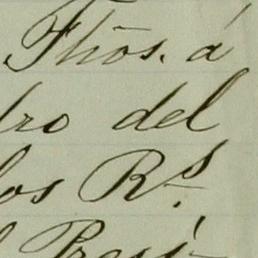 Fhõs. á
dro del
los R.s
l Presi-